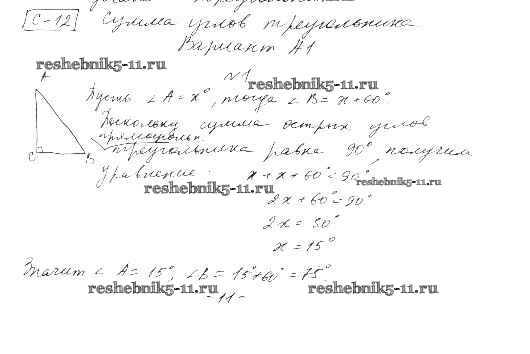 С-12 Сумма углов треугольника
Вариант А1
reshebnik5-11.ru
№1
reshebnik5-11.ru
A
Пусть ∠A = x°, тогда ∠B = x+60°
Поскольку сумма острых углов
прямоугольн.
треугольника равна 90°, получим
C B
уравнение: x + x + 60° = 90°
reshebnik5-11.ru
reshebnik5-11.ru
2x + 60° = 90°
2x = 30°
x = 15°
Значит ∠A = 15°, ∠B = 15°+60° = 75°
reshebnik5-11.ru reshebnik5-11.ru
- 11 -